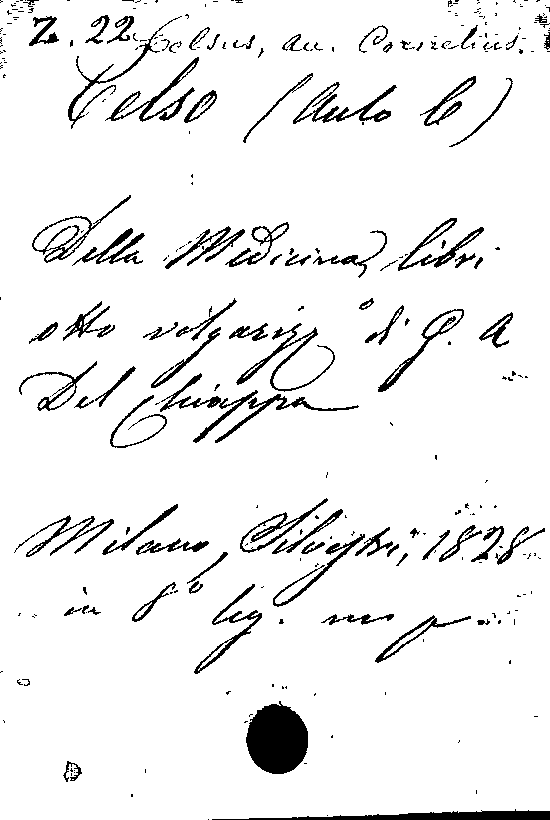 Z. 22 Celsus, Au. Cornelius.
Celso (Aulo C)
Della Medicina, libri
otto volgarizzº di G. A
Del Chiappa
Milano, Silvestri, 1828
in 8º leg. m p.